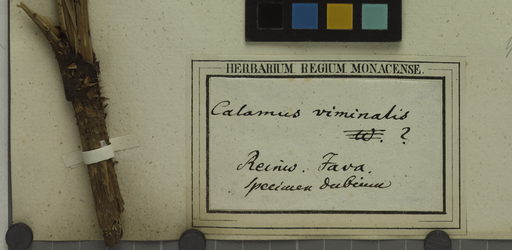 HERBARIUM REGIUM MONACENSE.
Calamus viminalis
W. ?
Reinw. Java.
Specimen dubium